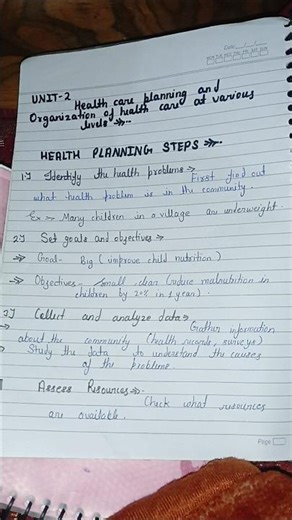 Date
UNIT-2
Health care planning and
Organization of health care at various
levels
HEALTH PLANNING STEPS
1.] Identify the health problems → First find out
what health problem is in the community.
Ex → Many children in a village are underweight.
2.] Set goals and objectives →
Goal - Big (improve child nutrition)
Objectives - Small, clear (reduce malnutrition in
children by 20% in 1 year).
2.] Collect and analyze data → Gather information
about the community (health records, surveys)
Study the data to understand the causes
of the problems.
Assess Resources →
Check what resources
are available.
Page